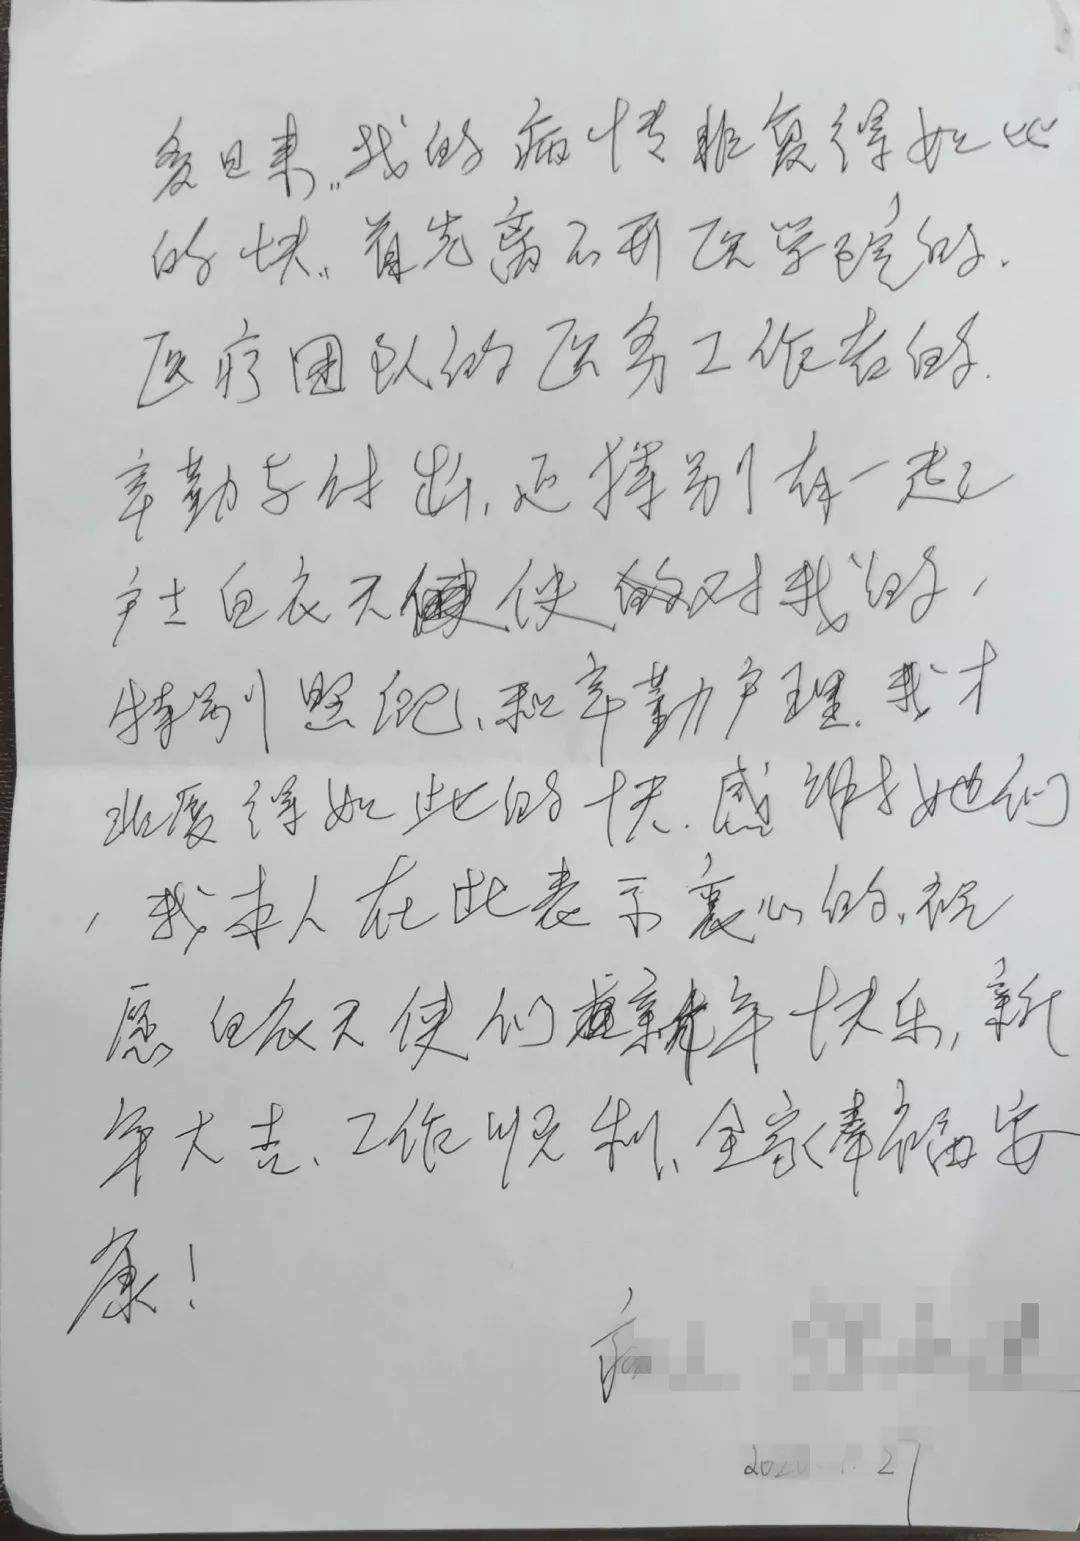 多日来，我的病情恢复得如此
的快，首先离不开医学院的.
医疗团队的医务工作者的.
辛勤与付出，还特别有一起
护士白衣天使对我的，
特别照顾、和辛勤护理. 我才
恢复得如此的快. 感谢她们
，我本人在此表示衷心的，祝
愿白衣天使们新年快乐，新
年大吉、工作顺利、全家幸福安
康！
27